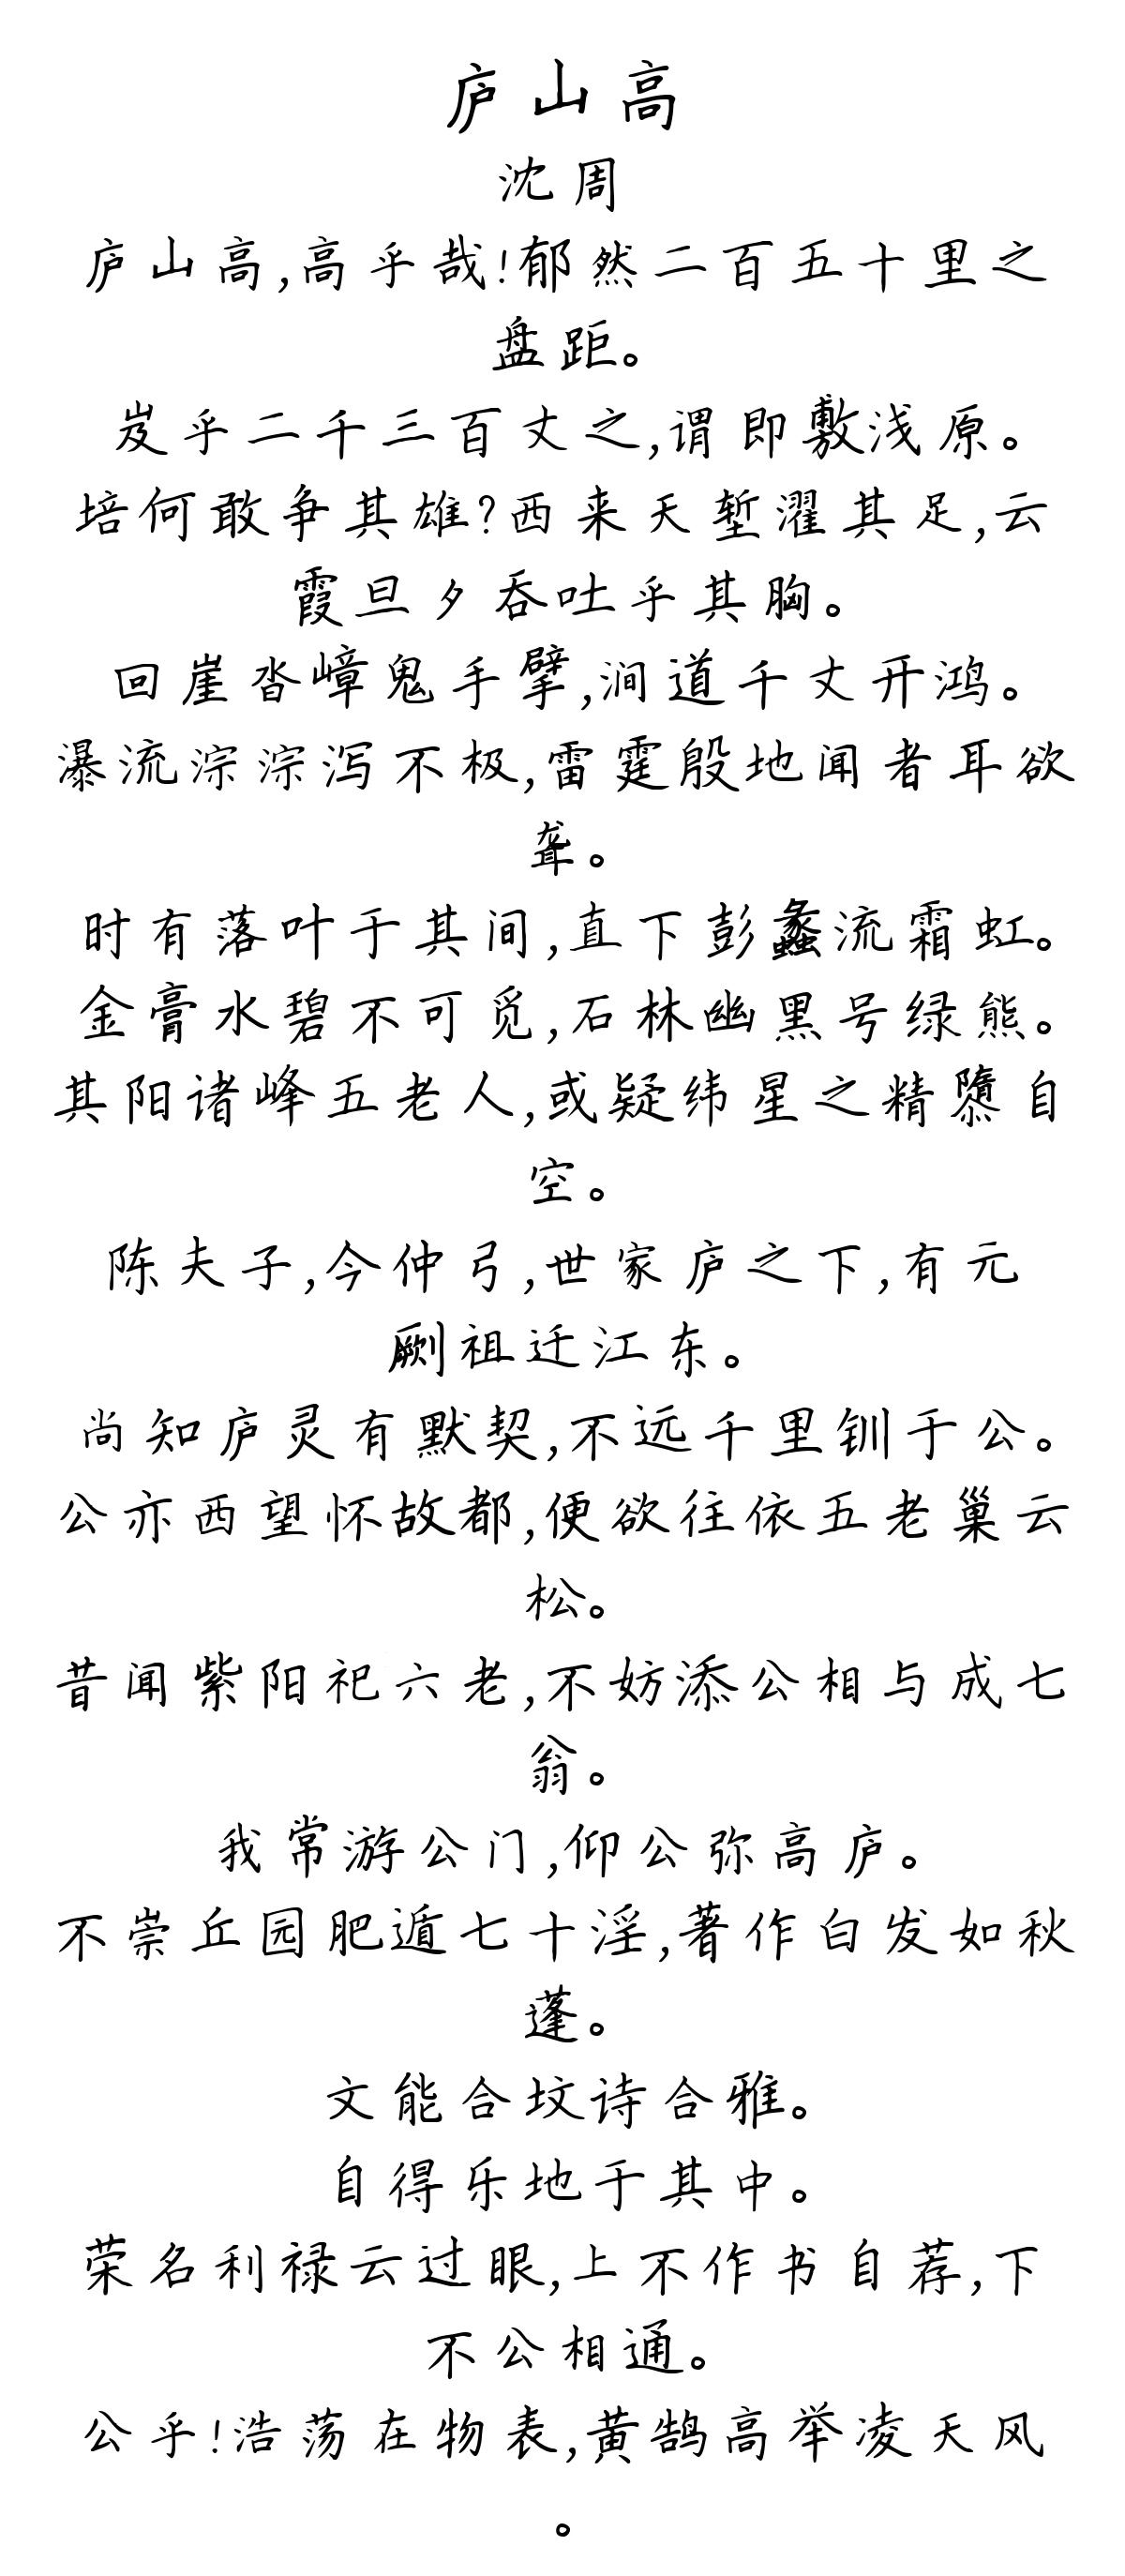 庐山高
沈周
庐山高,高乎哉!郁然二百五十里之
盘距。
岌乎二千三百丈之,谓即敷浅原。
培何敢争其雄?西来天堑濯其足,云
霞旦夕吞吐乎其胸。
回崖沓嶂鬼手擘,涧道千丈开鸿。
瀑流淙淙泻不极,雷霆殷地闻者耳欲
聋。
时有落叶于其间,直下彭蠡流霜虹。
金膏水碧不可觅,石林幽黑号绿熊。
其阳诸峰五老人,或疑纬星之精隳自
空。
陈夫子,今仲弓,世家庐之下,有元
劂祖迁江东。
尚知庐灵有默契,不远千里钏于公。
公亦西望怀故都,便欲往依五老巢云
松。
昔闻紫阳祀六老,不妨添公相与成七
翁。
我常游公门,仰公弥高庐。
不崇丘园肥遁七十淫,著作白发如秋
蓬。
文能合坟诗合雅。
自得乐地于其中。
荣名利禄云过眼,上不作书自荐,下
不公相通。
公乎!浩荡在物表,黄鹄高举凌天风
。